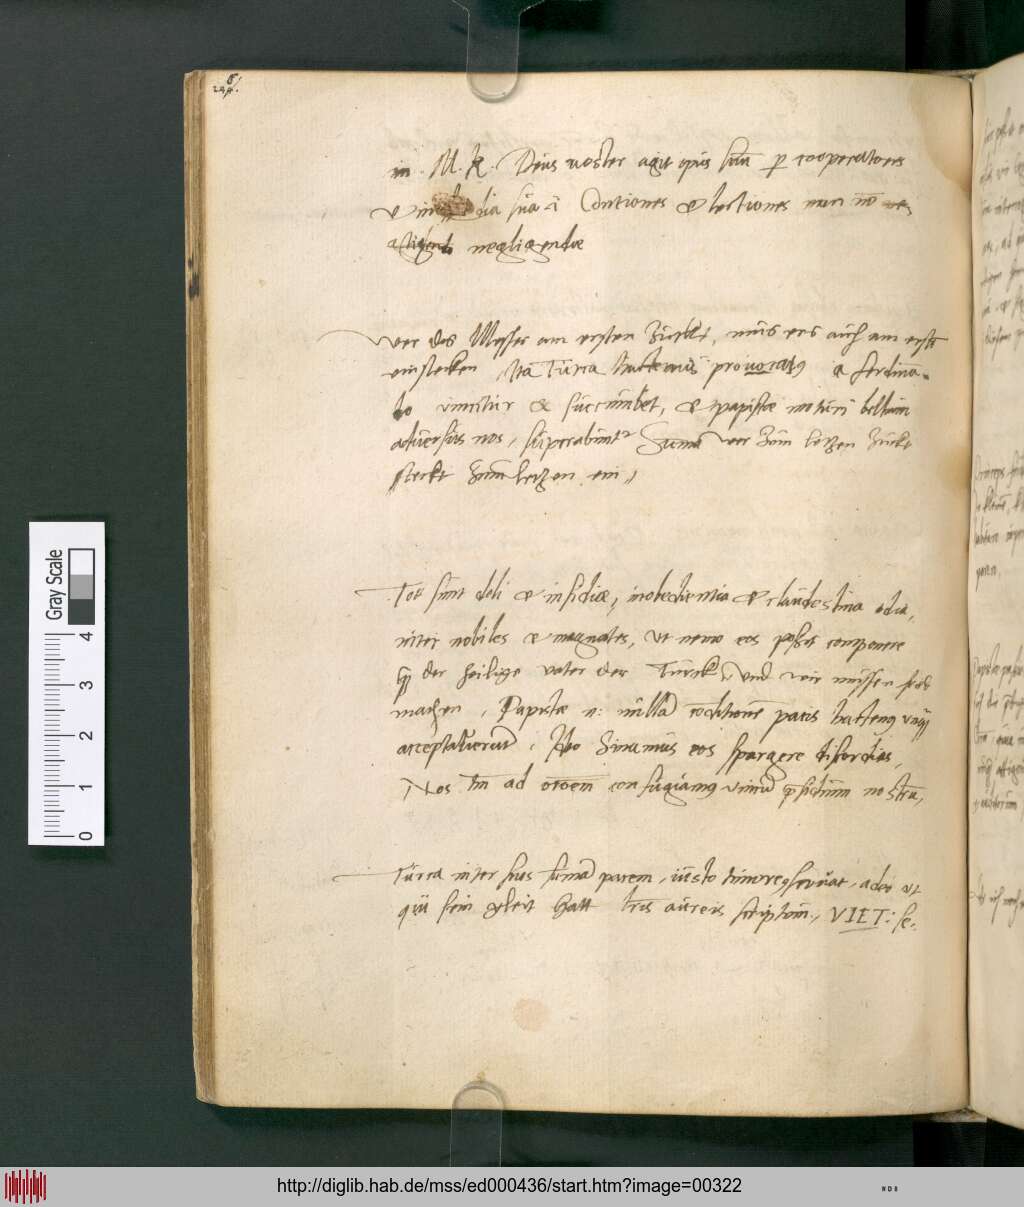 in M. R. Deus noster agit opus suum p cooperatores
et media sua Contiones et lectiones non
negligendae
Wer das Messer am ersten Zuckt, mus ers auch am erste
einstecken, Ita Turca hactenus provocatus a ferdina-
do vincitur et succumbet, et papistae moturi bellum
adversus nos, superabuntr Summa wer Zum letzen Zuckt
steckt Zum letzen ein
Tot sunt doli et insidiae, inobedientia et clandestina odia,
inter nobiles et magnates, ut nemo eos possit componere
der heilige vater der Turck, Und wir mussen frid
machen, Papistae n: nullā conditionē pacis hactenus unq
acceptaverunt, Ideo sinamus eos spargere discordias,
Nos tn̄ ad orōem confugiamus unicū psidium nostrū,
Turca inter suos summā pacem, iusto timore servat, adeo ut
qui sein gleit hatt lr̄is aureis scriptom, VIET: se-
Gray Scale
4
3
2
1
0
http://diglib.hab.de/mss/ed000436/start.htm?image=00322